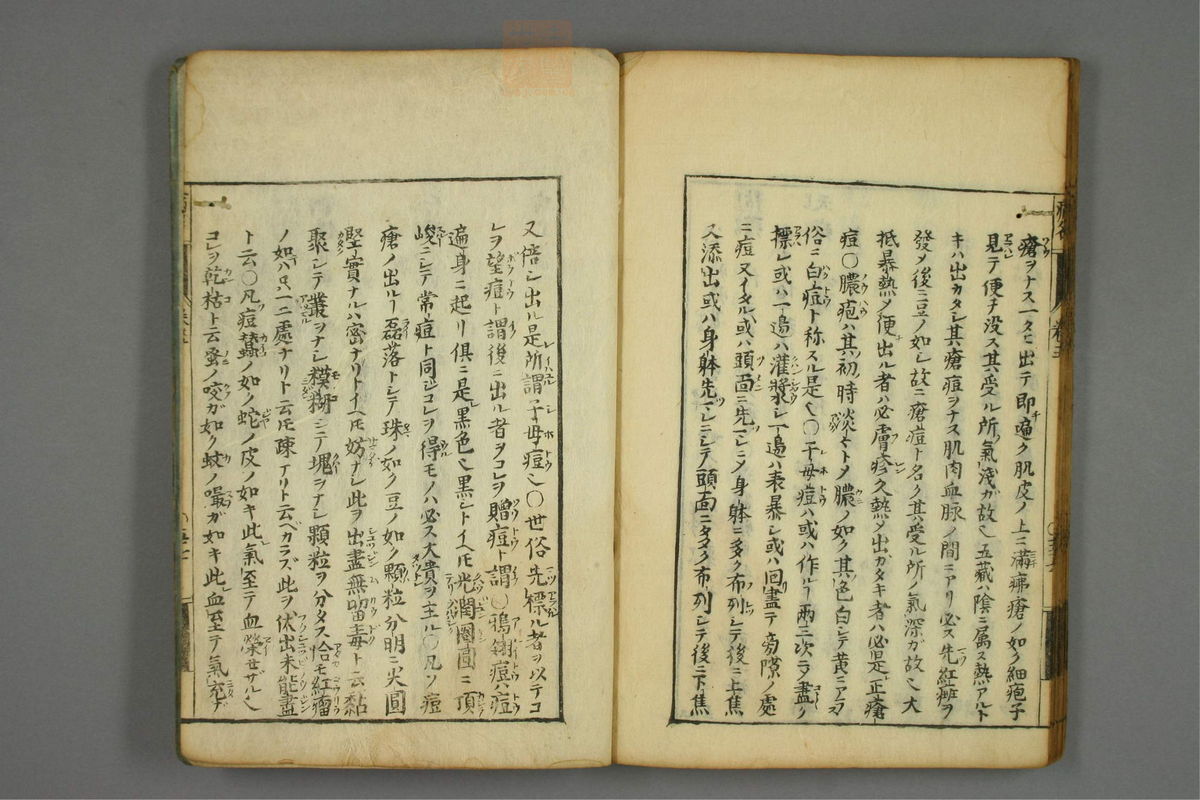 瘡ヲナス一タニ出テ即遍ク肌皮ノ上ニ満疿瘡ノ如ク細疱子
見テ便チ没ス其受ル所ノ氣淺ガ故也五藏ハ陰ニ属ス熱アルト
キハ出カタシ其瘡痘ヲナス肌肉血脉ノ間ニアリ必ス先紅癍ヲ
發メ後ニ豆ノ如シ故ニ瘡痘ト名ク其受ル所ノ氣深ガ故也大
抵暴熱メ便出ル者ハ必膚疹久熱メ出ガタキ者ハ必是正瘡
痘〇膿疱ハ其初時淡々トメ膿ノ如ク其色白シテ黄ニアラ
俗ニ白痘ト称スル是也〇子母痘ハ或ハ作ルヿ兩三次ラ盡ク
標レ或ハ一邉ハ灌漿シ一邉ハ表暴レ或ハ回盡テ旁隙ノ處
ニ痘又イタル或ハ頭面ニ先一シメ身躰ニ多ク布列シテ後ニ上焦
又添出或ハ身躰先一シテ頭面ニタク布列シテ後ニ下焦
又倍シ出ル是所謂子母痘也〇世俗先標ル者ヲ以テコ
レヲ望痘ト謂後ニ出ル者ヲコレヲ贈痘ト謂〇鴉翎痘ハ痘
遍身ニ起リ俱ニ是黒色也黒シトイヘ𪜈光潤圏圓ニ頂
峻ニシテ常痘ト同シコレヲ得モノハ必ス大貴ヲ主ル〇凡ソ痘
瘡ノ出ルヿ磊落トシテ珠ノ如ク豆ノ如ク顆粒分明ニ尖圓
堅實ナルハ密ナリトイヘ𪜈妨ナシ此ヲ出盡無留毒ト云黏
聚シテ叢ヲナシ糢糊シテ塊ヲナシ顆粒ヲ分タス恰モ紅瘤
ノ如ハ只一二處ナリト云𪜈疎アリト云ヘカラズ此ヲ伏出未能盡
ト云〇凡痘蠶ノ如ク蛇ノ皮ノ如キ此氣至テ血榮セザル也
コレヲ乾枯ト云蚤ノ咬ガ如ク蚊ノ噆ガ如キ此レ血至テ氣充ザ